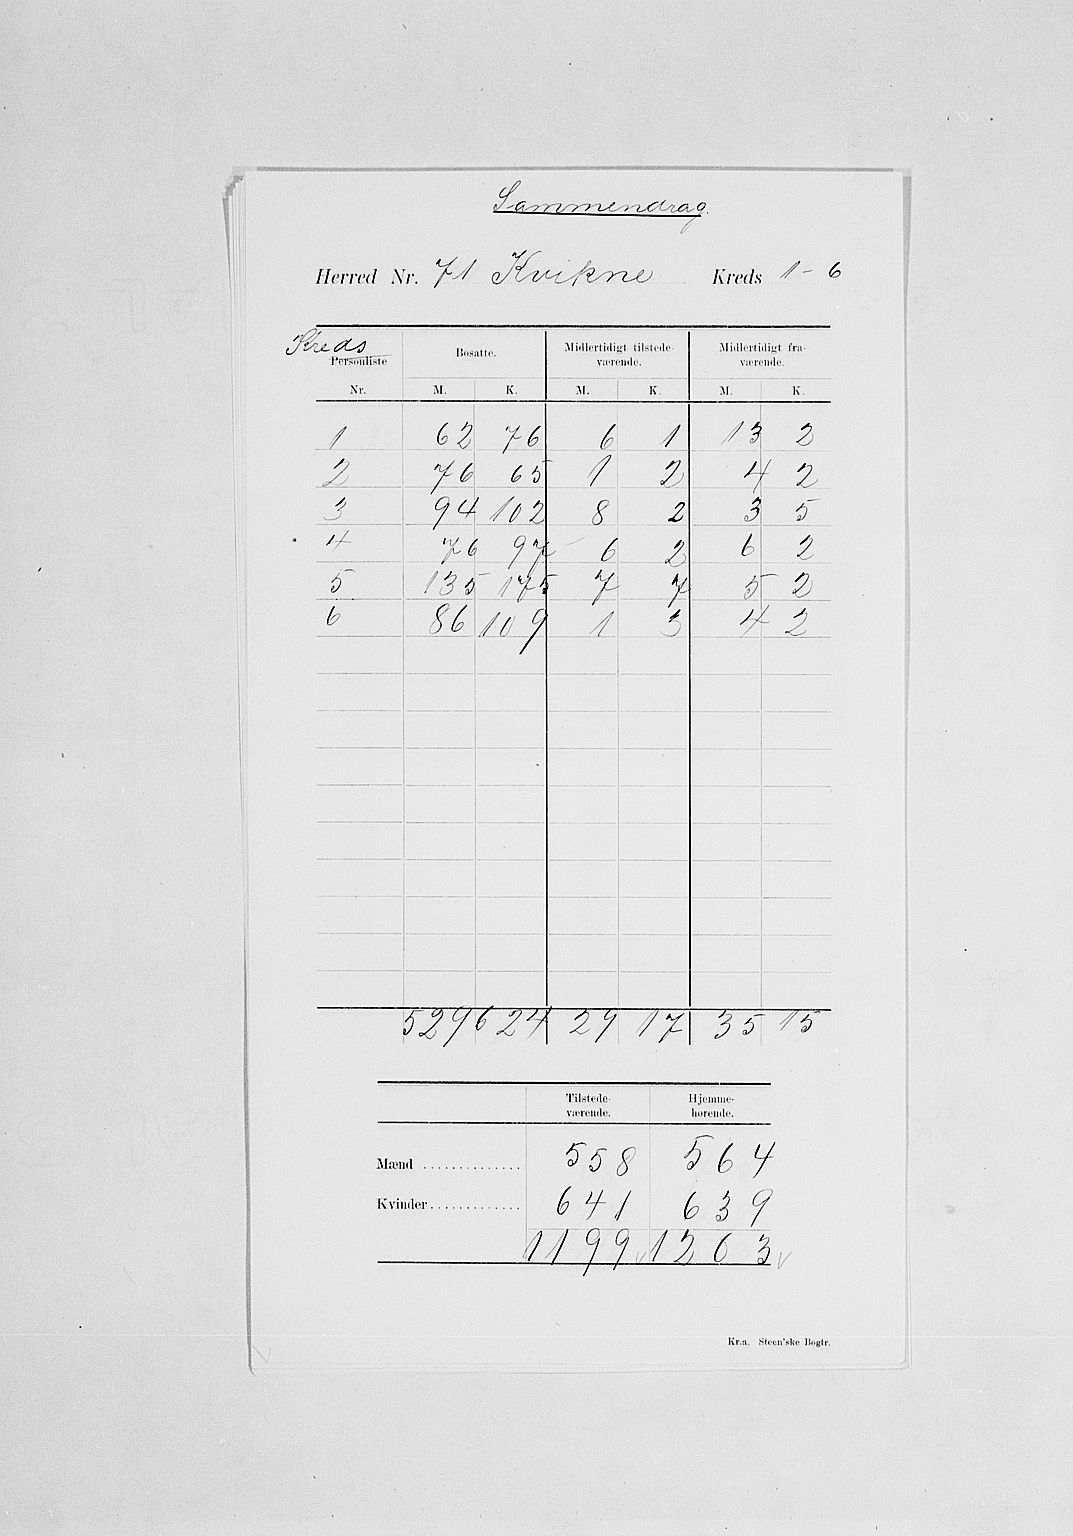 Sammendrag.
Herred Nr. 71 Kvikne Kreds 1-6
Kreds
Personliste Bosatte. Midlertidigt tilstede- Midlertidigt fra-
værende. værende.
Nr. M. K. M. K. M. K.
1 62 76 6 1 13 2
2 76 65 1 2 4 2
3 94 102 8 2 3 5
4 76 97 6 2 6 2
5 135 175 7 7 5 2
6 86 109 1 3 4 2
529 624 29 17 35 15
Tilstede- Hjemme-
værende. hørende.
Mænd .............. 558 564
Kvinder ............. 641 639
1199 1203
Kr.a. Steen'ske Bogtr.